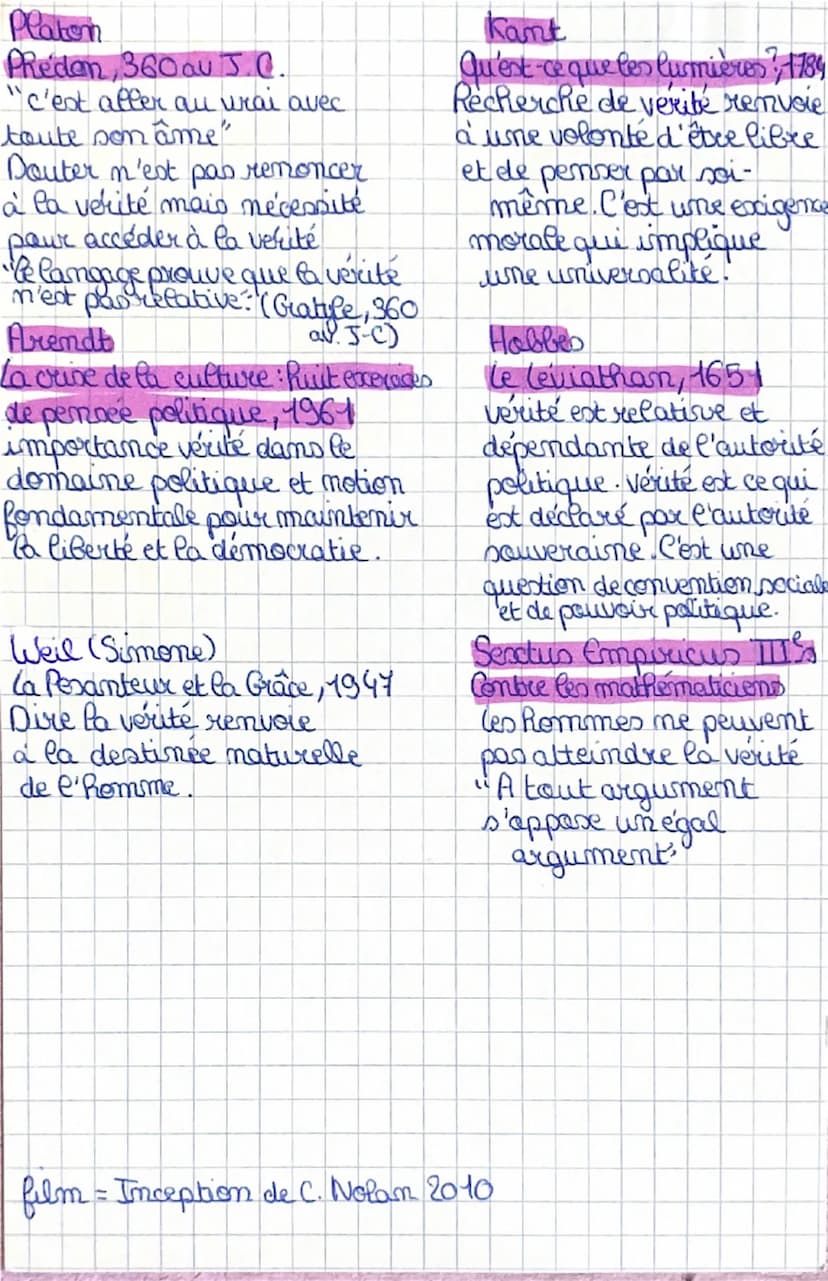 Platon
Phédon, 360 av J.C.
"c'est aller au vrai avec
toute son âme"
Douter n'est pas renoncer
à la vérité mais nécessité
pour accéder à la vérité
"le langage prouve que la vérité
n'est pas relative." (Cratyle, 360
av. J-C)
Arendt
La crise de la culture : huit exercices
de pensée politique, 1961
importance vérité dans le
domaine politique et notion
fondamentale pour maintenir
la liberté et la démocratie.
Weil (Simone)
La Pesanteur et la Grâce, 1947
Dire la vérité renvoie
à la destinée naturelle
de l'homme.
Kant
Qu'est-ce que les lumières ?, 1784
Recherche de vérité renvoie
à une volonté d'être libre
et de penser par soi-
même. C'est une exigence
morale qui implique
une universalité.
Hobbes
Le Léviathan, 1651
vérité est relative et
dépendante de l'autorité
politique. vérité est ce qui
est déclaré par l'autorité
souveraine. C'est une
question de convention sociale
et de pouvoir politique.
Sextus Empiricus IIIs
Contre les mathématiciens
les hommes ne peuvent
pas atteindre la vérité
"A tout argument
s'oppose un égal
argument"
film = Inception de C. Nolan 2010